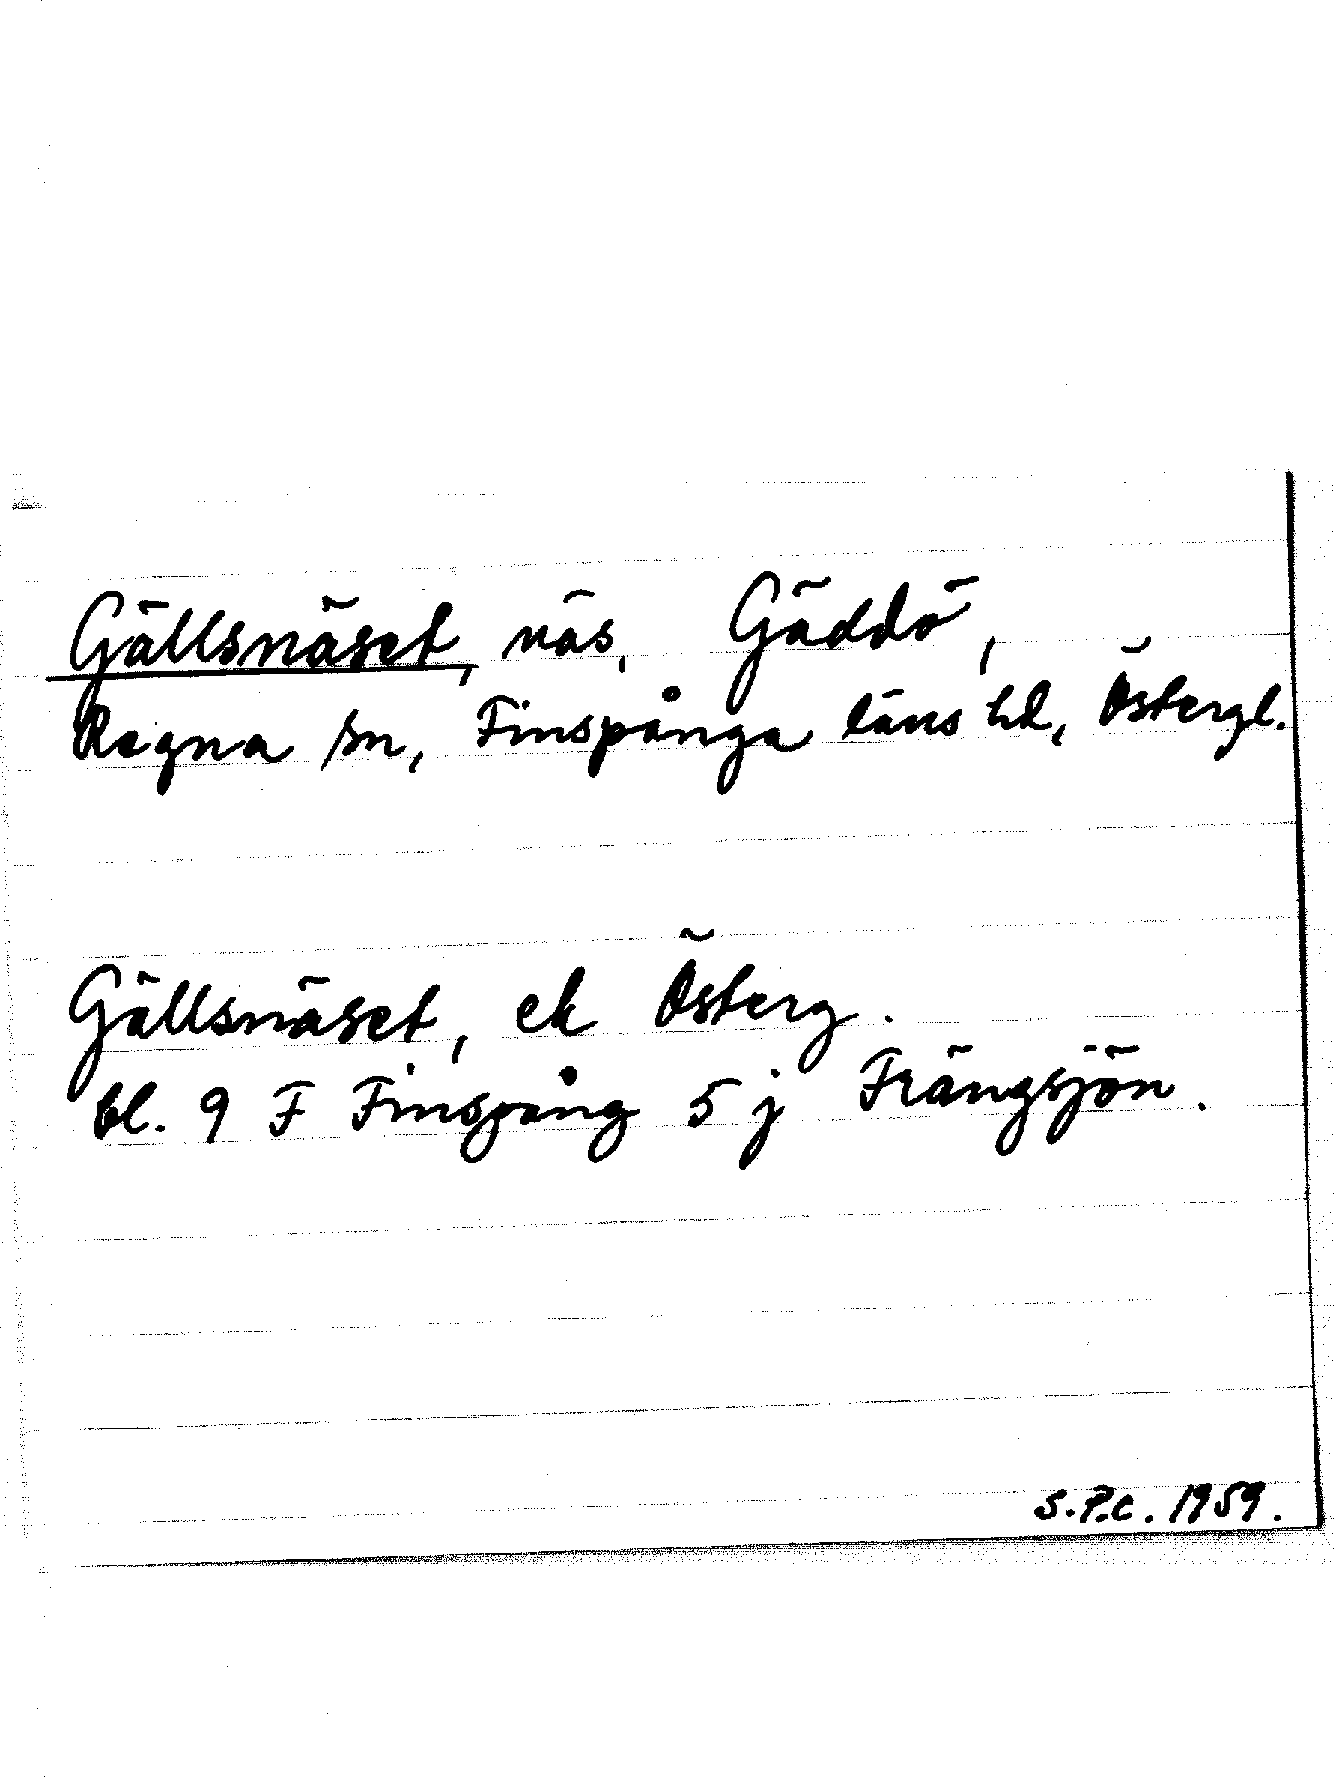 Gällsnäset, näs, Gäddö,
Regna sn, Finspånga läns hd, Östergl.
Gällsnäset, ek Österg.
bl. 9 F Finspång 5 j Frängsjön.
S.P.C. 1959.